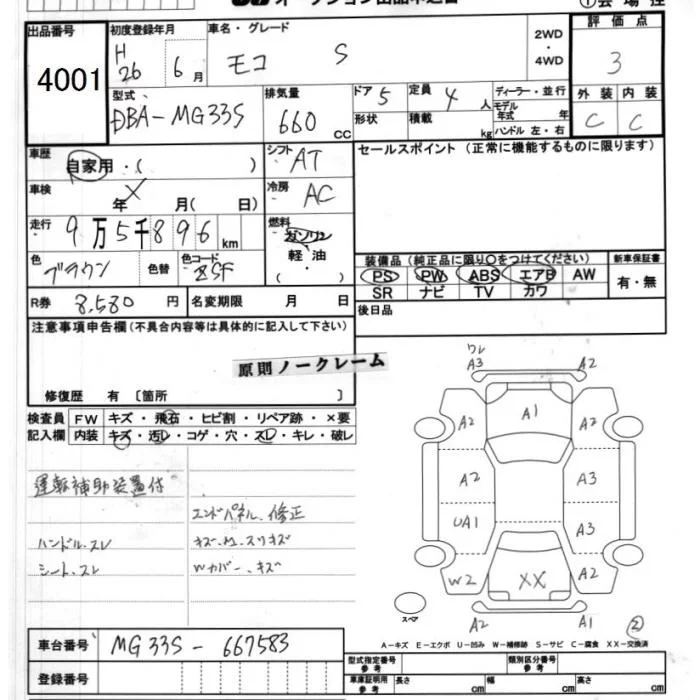 オークション出品申込書
①会場控
出品番号
4001
初度登録年月
H
26 6月
車名・グレード
モコ S
2WD
・
4WD
評価点
3
外装 内装
C C
型式
DBA-MG33S
排気量
660 cc
ドア 5
形状
定員 4 人
積載 kg
ディーラー・並行
モデル年式 年
ハンドル 左・右
車歴
自家用・( )
シフト AT
車検 X
年 月( 日)
冷房 AC
走行
9万5千896 km
燃料
ガソリン
軽・油
・( )
色
ブラウン
色替
色コード
ZSF
R券 8,580 円
名変期限 月 日
セールスポイント (正常に機能するものに限ります)
装備品 (純正品に限り○をつけてください)
新車保証書
PS PW ABS エアB AW
SR ナビ TV カワ
有・無
後日品
注意事項申告欄(不具合内容等は具体的に記入して下さい)
原則ノークレーム
修復歴 有 〔箇所 〕
検査員
記入欄
FW キズ・飛石・ヒビ割・リペア跡・×要
内装 キズ・汚レ・コゲ・穴・スレ・キレ・破レ
運転補助装置付
エンドパネル.修正
ハンドル.スレ
キズ.凹.スリキズ
シート.スレ
Wカバー.キズ
ワレ
A3 A2
A2 A1 A2
A2 A3
UA1 A3
W2 XX A2
スペア
A2 A1
②
A-キズ E-エクボ U-凹み W-補修跡 S-サビ C-腐食 XX-交換済
車台番号 MG33S-667583
登録番号
型式指定番号 参考
類別区分番号 参考
車庫証明用 参考
長さ cm 幅 cm 高さ cm